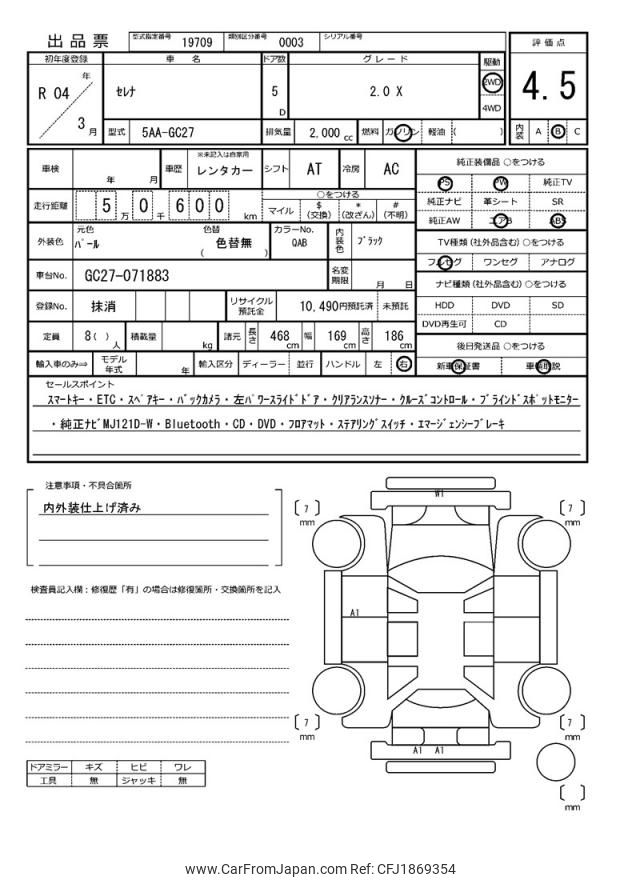 出品票
型式指定番号 19709 類別区分番号 0003 シリアル番号
評価点
4.5
内装 A B C
初年度登録 車名 ドア数 グレード 駆動
R 04 年 3 月 セレナ 5 D 2.0 X 2WD 4WD
型式 5AA-GC27 排気量 2,000 cc 燃料 ガソリン 軽油 ( )
車検 年 月 車歴 ※未記入は自家用 レンタカー シフト AT 冷房 AC
走行距離 5 万 0 千 6 0 0 km
○をつける
マイル $ (交換) * (改ざん) # (不明)
外装色 元色 パール 色替 色替無 ( ) カラーNo. QAB 内装色 ブラック
車台No. GC27-071883 名変期限 月 日
登録No. 抹消 リサイクル預託金 10,490円預託済 未預託
定員 8( ) 人 積載量 kg 諸元 長さ 468 cm 幅 169 cm 高さ 186 cm
輸入車のみ⇒ モデル年式 年 輸入区分 ディーラー 並行 ハンドル 左 右
純正装備品 ○をつける
PS PW 純正TV
純正ナビ 革シート SR
純正AW エアB ABS
TV種類(社外品含む) ○をつける
フルセグ ワンセグ アナログ
ナビ種類(社外品含む) ○をつける
HDD DVD SD
DVD再生可 CD
後日発送品 ○をつける
新車保証書 車輌取説
セールスポイント
スマートキー・ETC・スペアキー・バックカメラ・左パワースライドドア・クリアランスソナー・クルーズコントロール・ブラインドスポットモニター
・純正ナビMJ121D-W・Bluetooth・CD・DVD・フロアマット・ステアリングスイッチ・エマージェンシーブレーキ
注意事項・不具合箇所
内外装仕上げ済み
検査員記入欄：修復歴「有」の場合は修復箇所・交換箇所を記入
ドアミラー キズ ヒビ ワレ
工具 無 ジャッキ 無
[ 7 ] mm
W1
[ 7 ] mm
A1
[ 7 ] mm
A1 A1
[ 7 ] mm
[ ] mm
www.CarFromJapan.com Ref: CFJ1869354